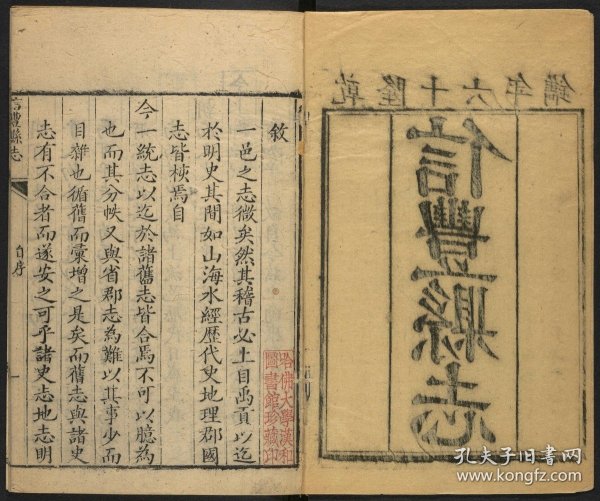 乾隆十六年鐫
信豐縣志
敘
一邑之志微矣然其稽古必上自禹貢以迄
於明史其間如山海水經歷代史地理郡國
志皆核焉自
今一統志以迄於諸舊志皆合焉不可以臆為
也而其分帙又與省郡志為難以其事少而
目雜也循舊而彙增之是矣而舊志與諸史
志有不合者而遂安之可乎諸史志地志明
信豐縣志
自序
一
哈佛大學漢和
圖書館珍藏印
孔夫子旧书网
www.kongfz.com